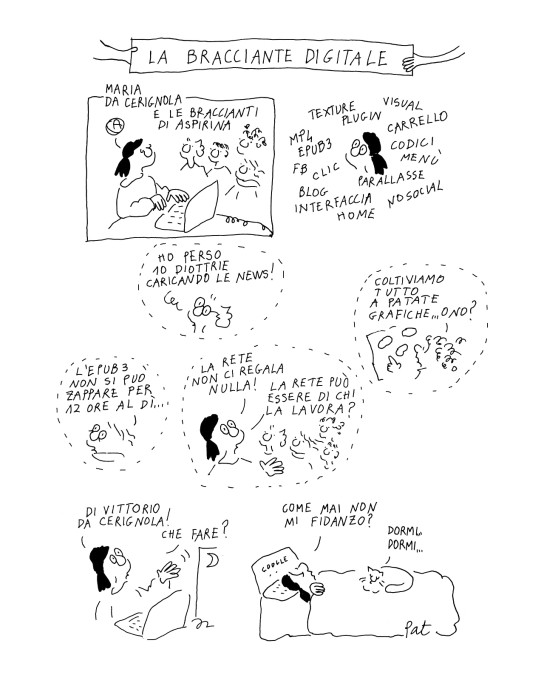 LA BRACCIANTE DIGITALE
MARIA
DA CERIGNOLA
E LE BRACCIANTI
DI ASPIRINA
A
TEXTURE
VISUAL
PLUGIN
CARRELLO
MP4
EPUB3
CODICI
MENÙ
FB
CLIC
PARALLASSE
BLOG
INTERFACCIA
NO SOCIAL
HOME
HO PERSO
10 DIOTTRIE
CARICANDO LE NEWS!
COLTIVIAMO
TUTTO
A PATATE
GRAFICHE,,,ONO?
L'EPUB3
NON SI PUÒ
ZAPPARE PER
12 ORE AL DÌ...
LA RETE
NON CI REGALA
NULLA!
LA RETE PUÒ
ESSERE DI CHI
LA LAVORA?
DI VITTORIO
DA CERIGNOLA!
CHE FARE?
COME MAI NON
MI FIDANZO?
DORMI,
DORMI...
GOOGLE
Pat